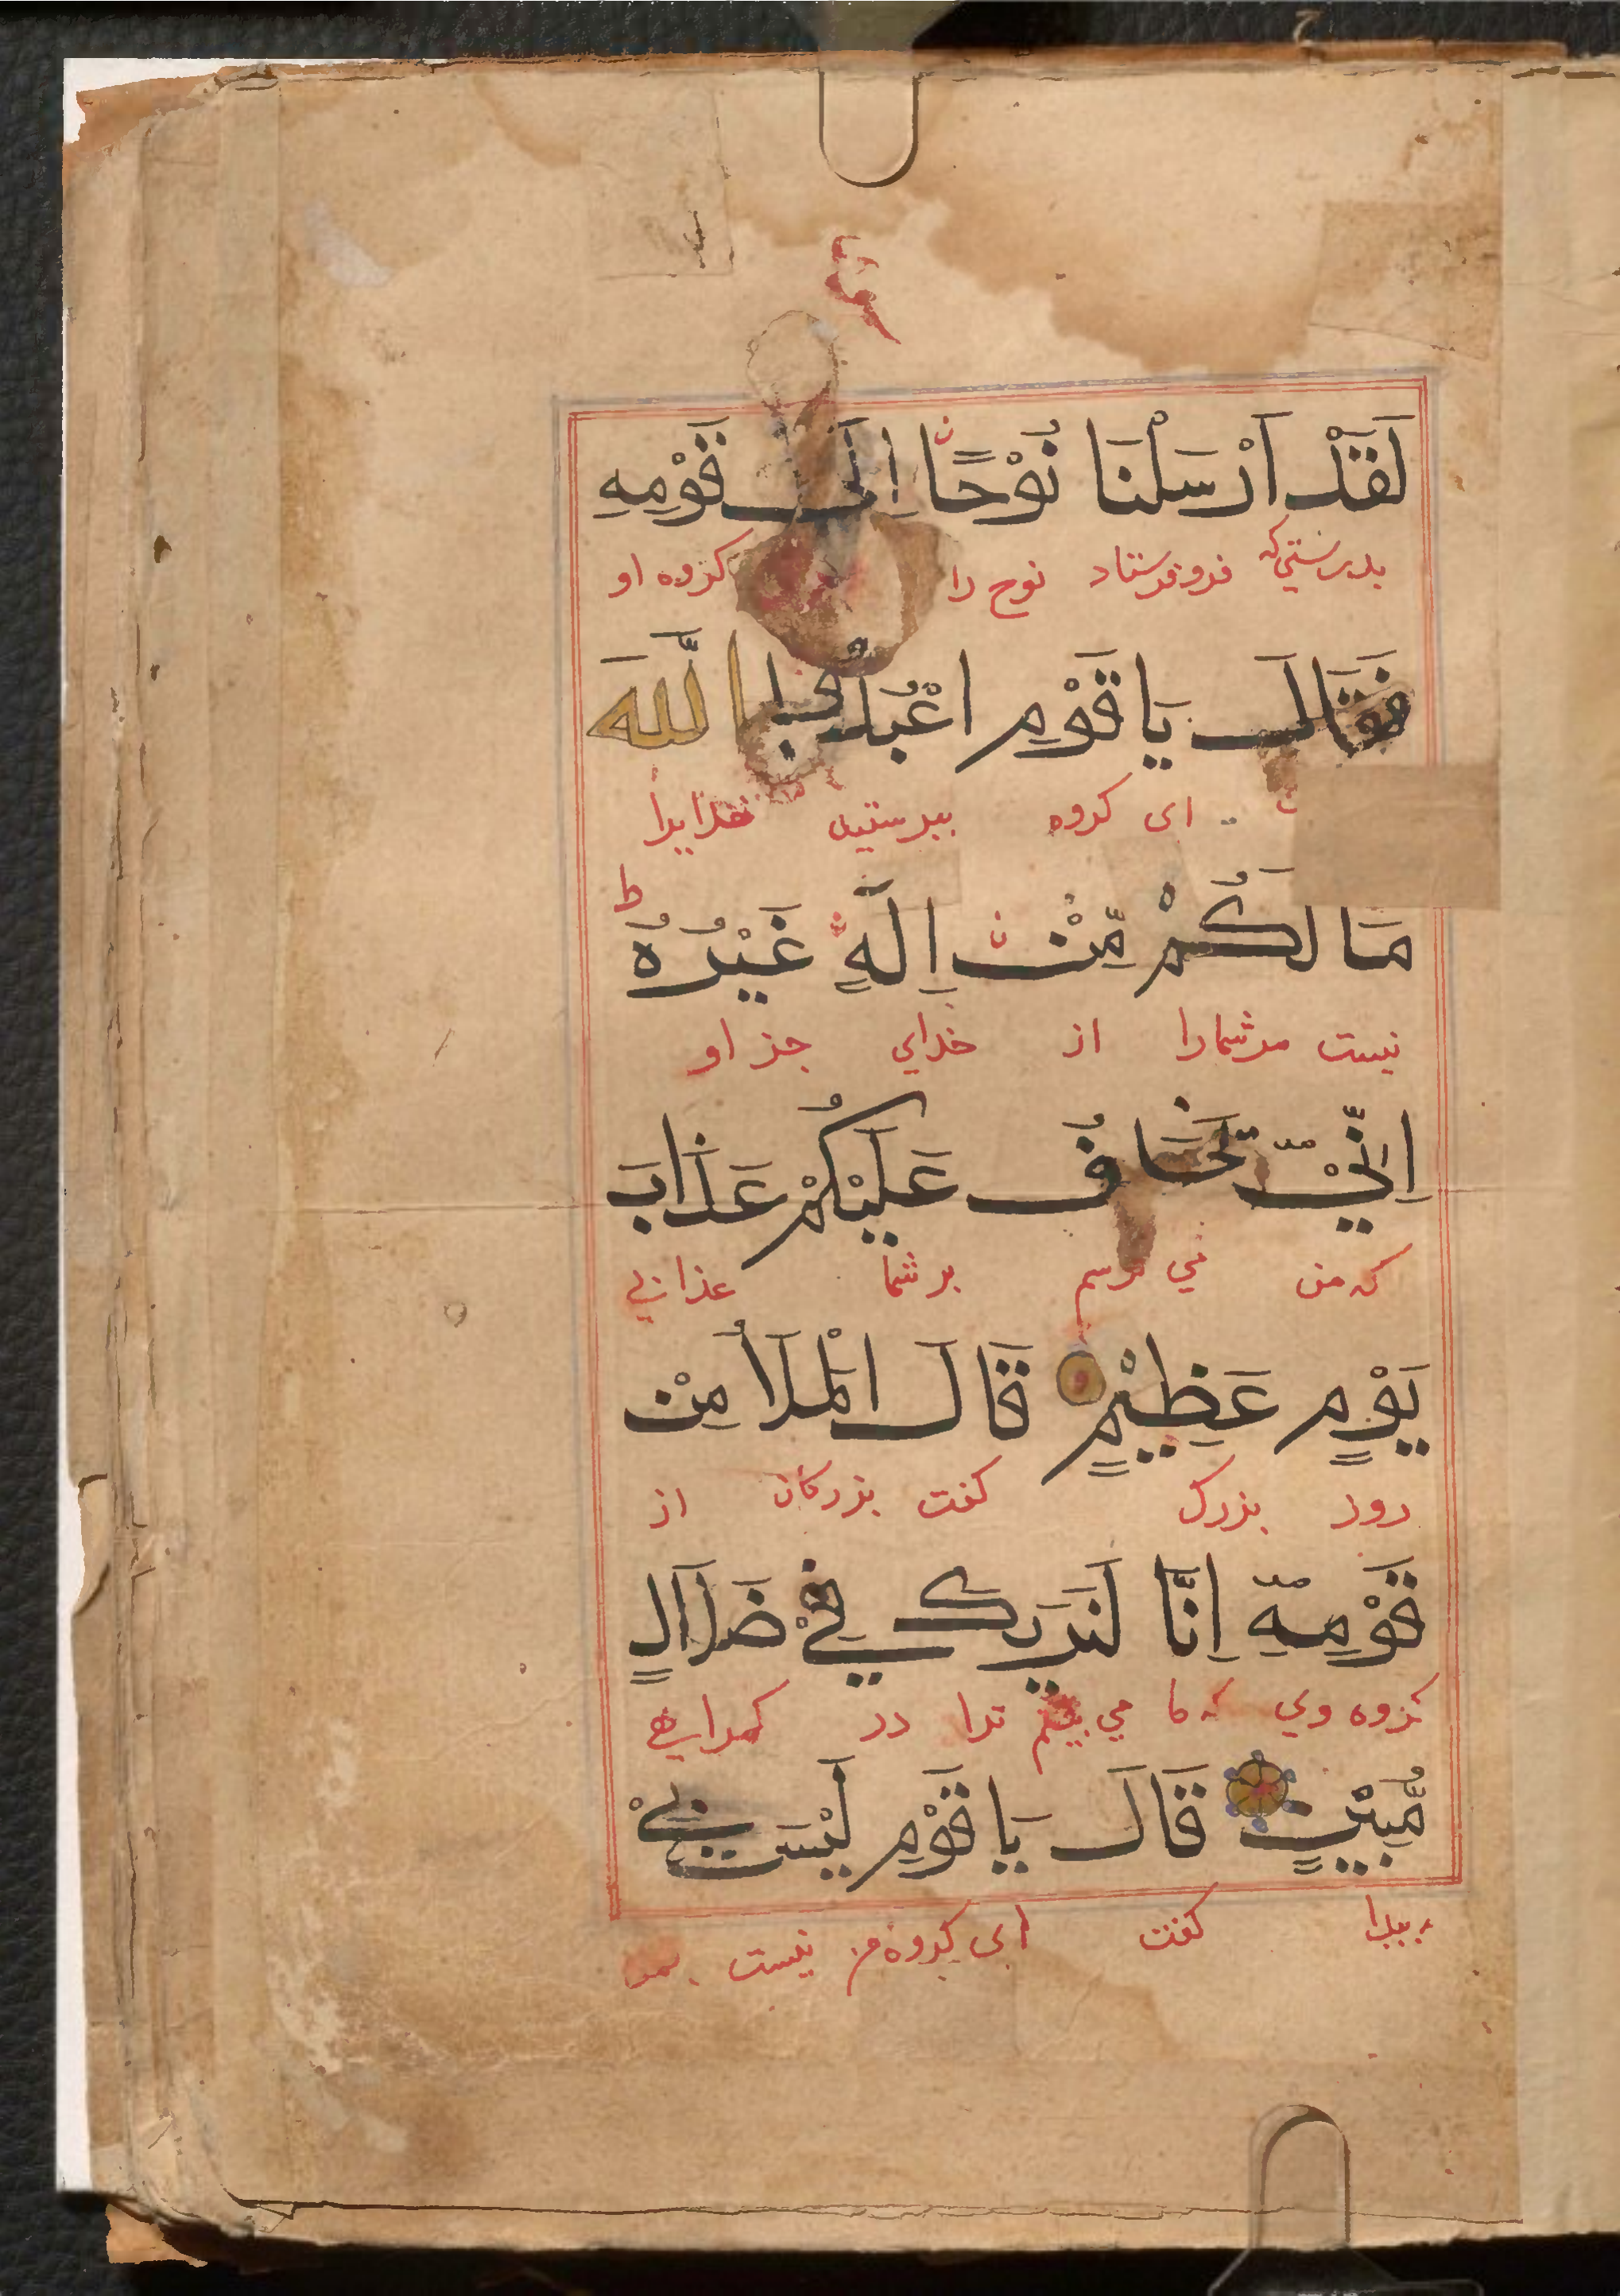 لَقَدْ اَرْسَلْنَا نُوْحًا اِلَى قَوْمِهِ
بدرستي كه فروفرستاد نوح را كروه او
فَقَالَ يَا قَوْمِ اعْبُدُوا اللّٰهَ
اى كروه بپرستيد خدايرا
ط
مَا لَكُمْ مِّنْ اِلَهٍ غَيْرُهُ
نيست مرشمارا از خداي جز او
اِنِّيْٓ اَخَافُ عَلَيْكُمْ عَذَابَ
كه من مي ترسم بر شما عذابي
يَوْمٍ عَظِيْمٍ قَالَ الْمَلَأُ مِنْ
روز بزرك كفت بزركان از
قَوْمِهِٓ اِنَّا لَنَرٰيكَ فِيْ ضَلَالٍ
كروه وي كه ما مي بينم ترا در كمراهي
مُّبِيْنٍ قَالَ يَا قَوْمِ لَيْسَ بِيْ
پيدا كفت اى كروه من نيست بمن